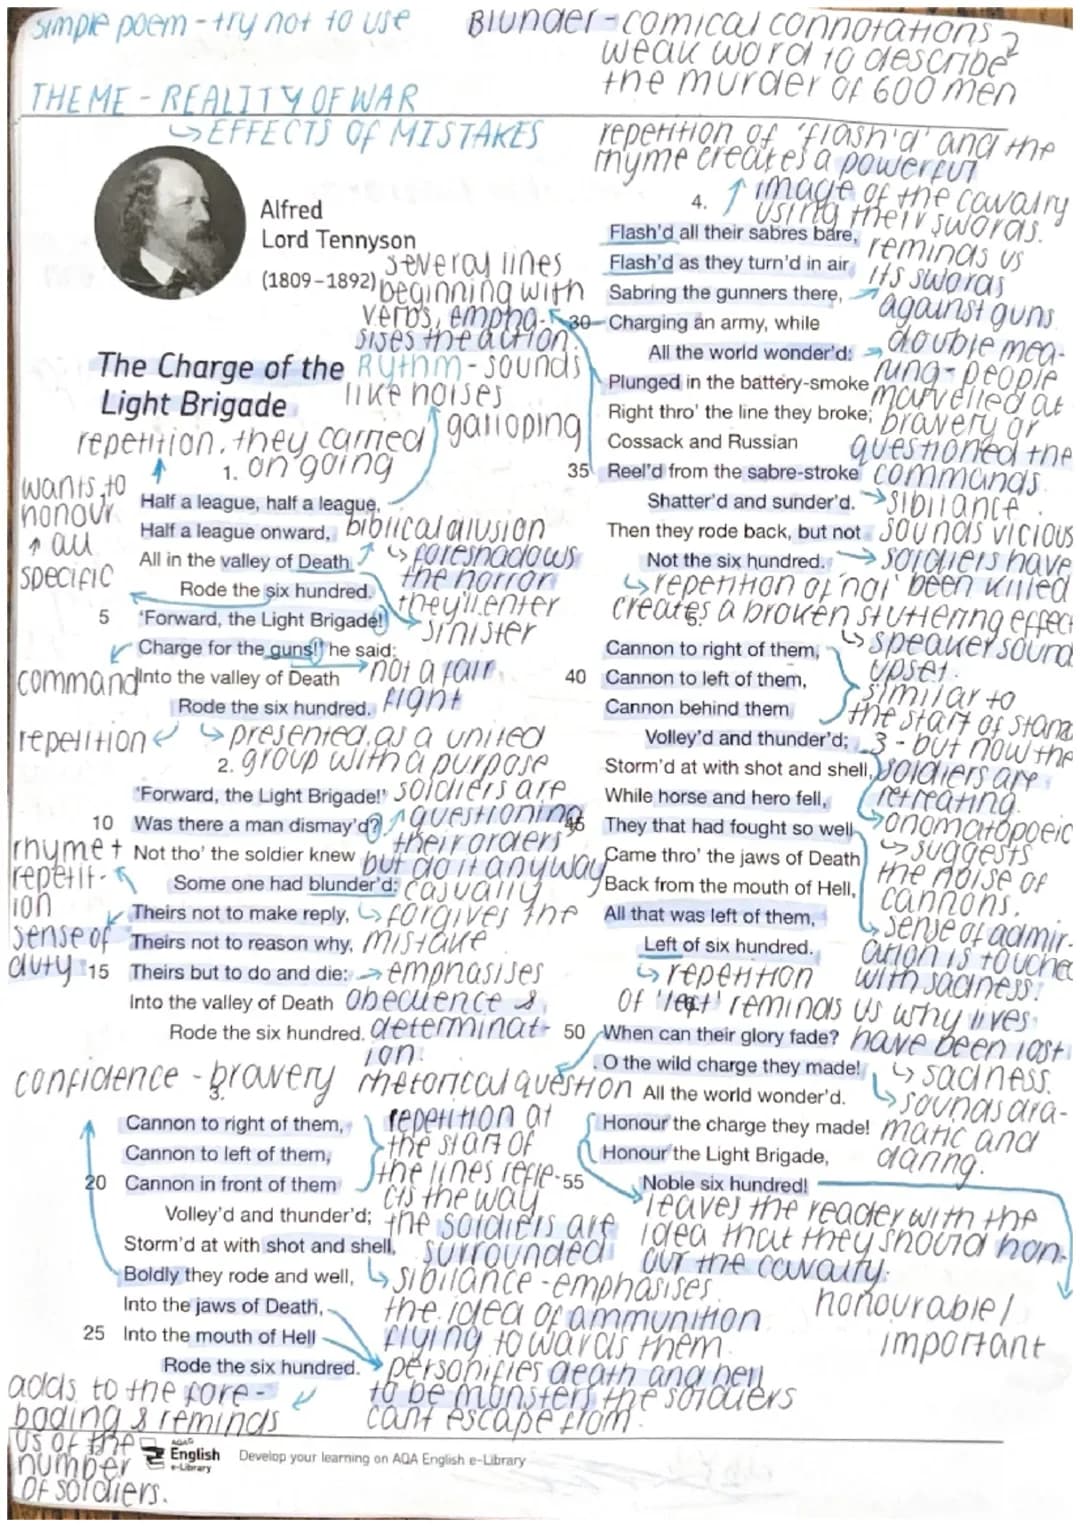 simple poem - try not to use
Blunder - comical connotations
weak word to describe
the murder of 600 men
THEME - REALITY OF WAR
↳ EFFECTS OF MISTAKES
Alfred
Lord Tennyson
(1809–1892)
several lines
beginning with
verbs, empha-
sises the action.
The Charge of the
Light Brigade
Rythm - sounds
like noises
galloping
repetition. they carried
on going
1.
wants to
honour
↑ all
specific
Half a league, half a league,
Half a league onward,
All in the valley of Death
Rode the six hundred.
biblical allusion
↳ foreshadows
the horror
they'll enter
sinister
5 'Forward, the Light Brigade!
Charge for the guns!' he said:
Into the valley of Death
Rode the six hundred.
command
not a fair
fight
repetition
↳ presented as a united
group with a purpose
2.
'Forward, the Light Brigade!'
10 Was there a man dismay'd?
Not tho' the soldier knew
Some one had blunder'd:
Theirs not to make reply,
Theirs not to reason why,
15 Theirs but to do and die:
Into the valley of Death
Rode the six hundred.
soldiers are
questioning
their orders
but do it anyway
casually
↳ forgives the
mistake
→ emphasises
obedience &
determinat-
ion.
rhyme +
repetit-
ion
sense of
duty
confidence - bravery
rhetorical question
3.
Cannon to right of them,
Cannon to left of them,
20 Cannon in front of them
Volley'd and thunder'd;
Storm'd at with shot and shell,
Boldly they rode and well,
Into the jaws of Death,
25 Into the mouth of Hell
Rode the six hundred.
repetition at
the start of
the lines refle-
cts the way
the soldiers are
surrounded
↳ sibilance - emphasises
the idea of ammunition
flying towards them.
personifies death and hell
to be monsters the soldiers
cant escape from.
adds to the fore-
boding & reminds
us of the
number
of soldiers.
repetition of 'flash'd' and the
rhyme creates a powerful
image of the cavalry
using their swords.
4.
Flash'd all their sabres bare,
Flash'd as they turn'd in air
Sabring the gunners there,
30 Charging an army, while
All the world wonder'd:
Plunged in the battery-smoke
Right thro' the line they broke;
Cossack and Russian
35 Reel'd from the sabre-stroke
Shatter'd and sunder'd.
Then they rode back, but not
Not the six hundred.
reminds us
its swords
against guns
double mea-
ning - people
marvelled at
bravery or
questioned the
commands.
→ sibilance.
sounds vicious
→ soldiers have
been killed
↳ repetition of 'not'
creates a broken stuttering effect
↳ speaker sound
upset.
5.
Cannon to right of them,
40 Cannon to left of them,
Cannon behind them
Volley'd and thunder'd;
Storm'd at with shot and shell,
While horse and hero fell,
45 They that had fought so well
Came thro' the jaws of Death
Back from the mouth of Hell,
All that was left of them,
Left of six hundred.
similar to
the start of stanz
3 - but now the
soldiers are
retreating.
onomatopoeic
↳ suggests
the noise of
cannons.
sense of admir-
ation is touched
with sadness.
↳ repetition
of 'left' reminds us why lives
have been lost
↳ sadness.
6.
50 When can their glory fade?
O the wild charge they made!
All the world wonder'd.
Honour the charge they made!
Honour the Light Brigade,
55 Noble six hundred!
↳ sounds dra-
matic and
daring.
leaves the reader with the
idea that they should hon-
our the cavalry.
honourable/
important
32
AQA
English
e-Library
Develop your learning on AQA English e-Library